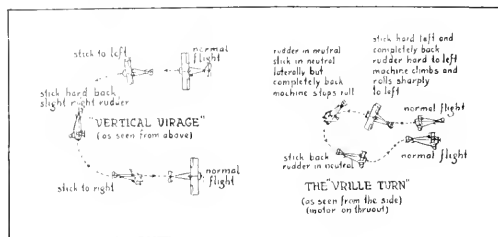 stick to left
normal
flight
stick hard back,
slight right rudder
"VERTICAL VIRAGE"
(as seen from above)
stick to right
normal
flight
rudder in neutral
stick in neutral
laterally but
completely back
machine stops roll
stick hard left and
completely back
rudder hard to left
machine climbs and
rolls sharply
to left
normal flight
normal flight
stick back
rudder in neutral
THE "VRILLE TURN"
(as seen from the side)
(motor on thruout)